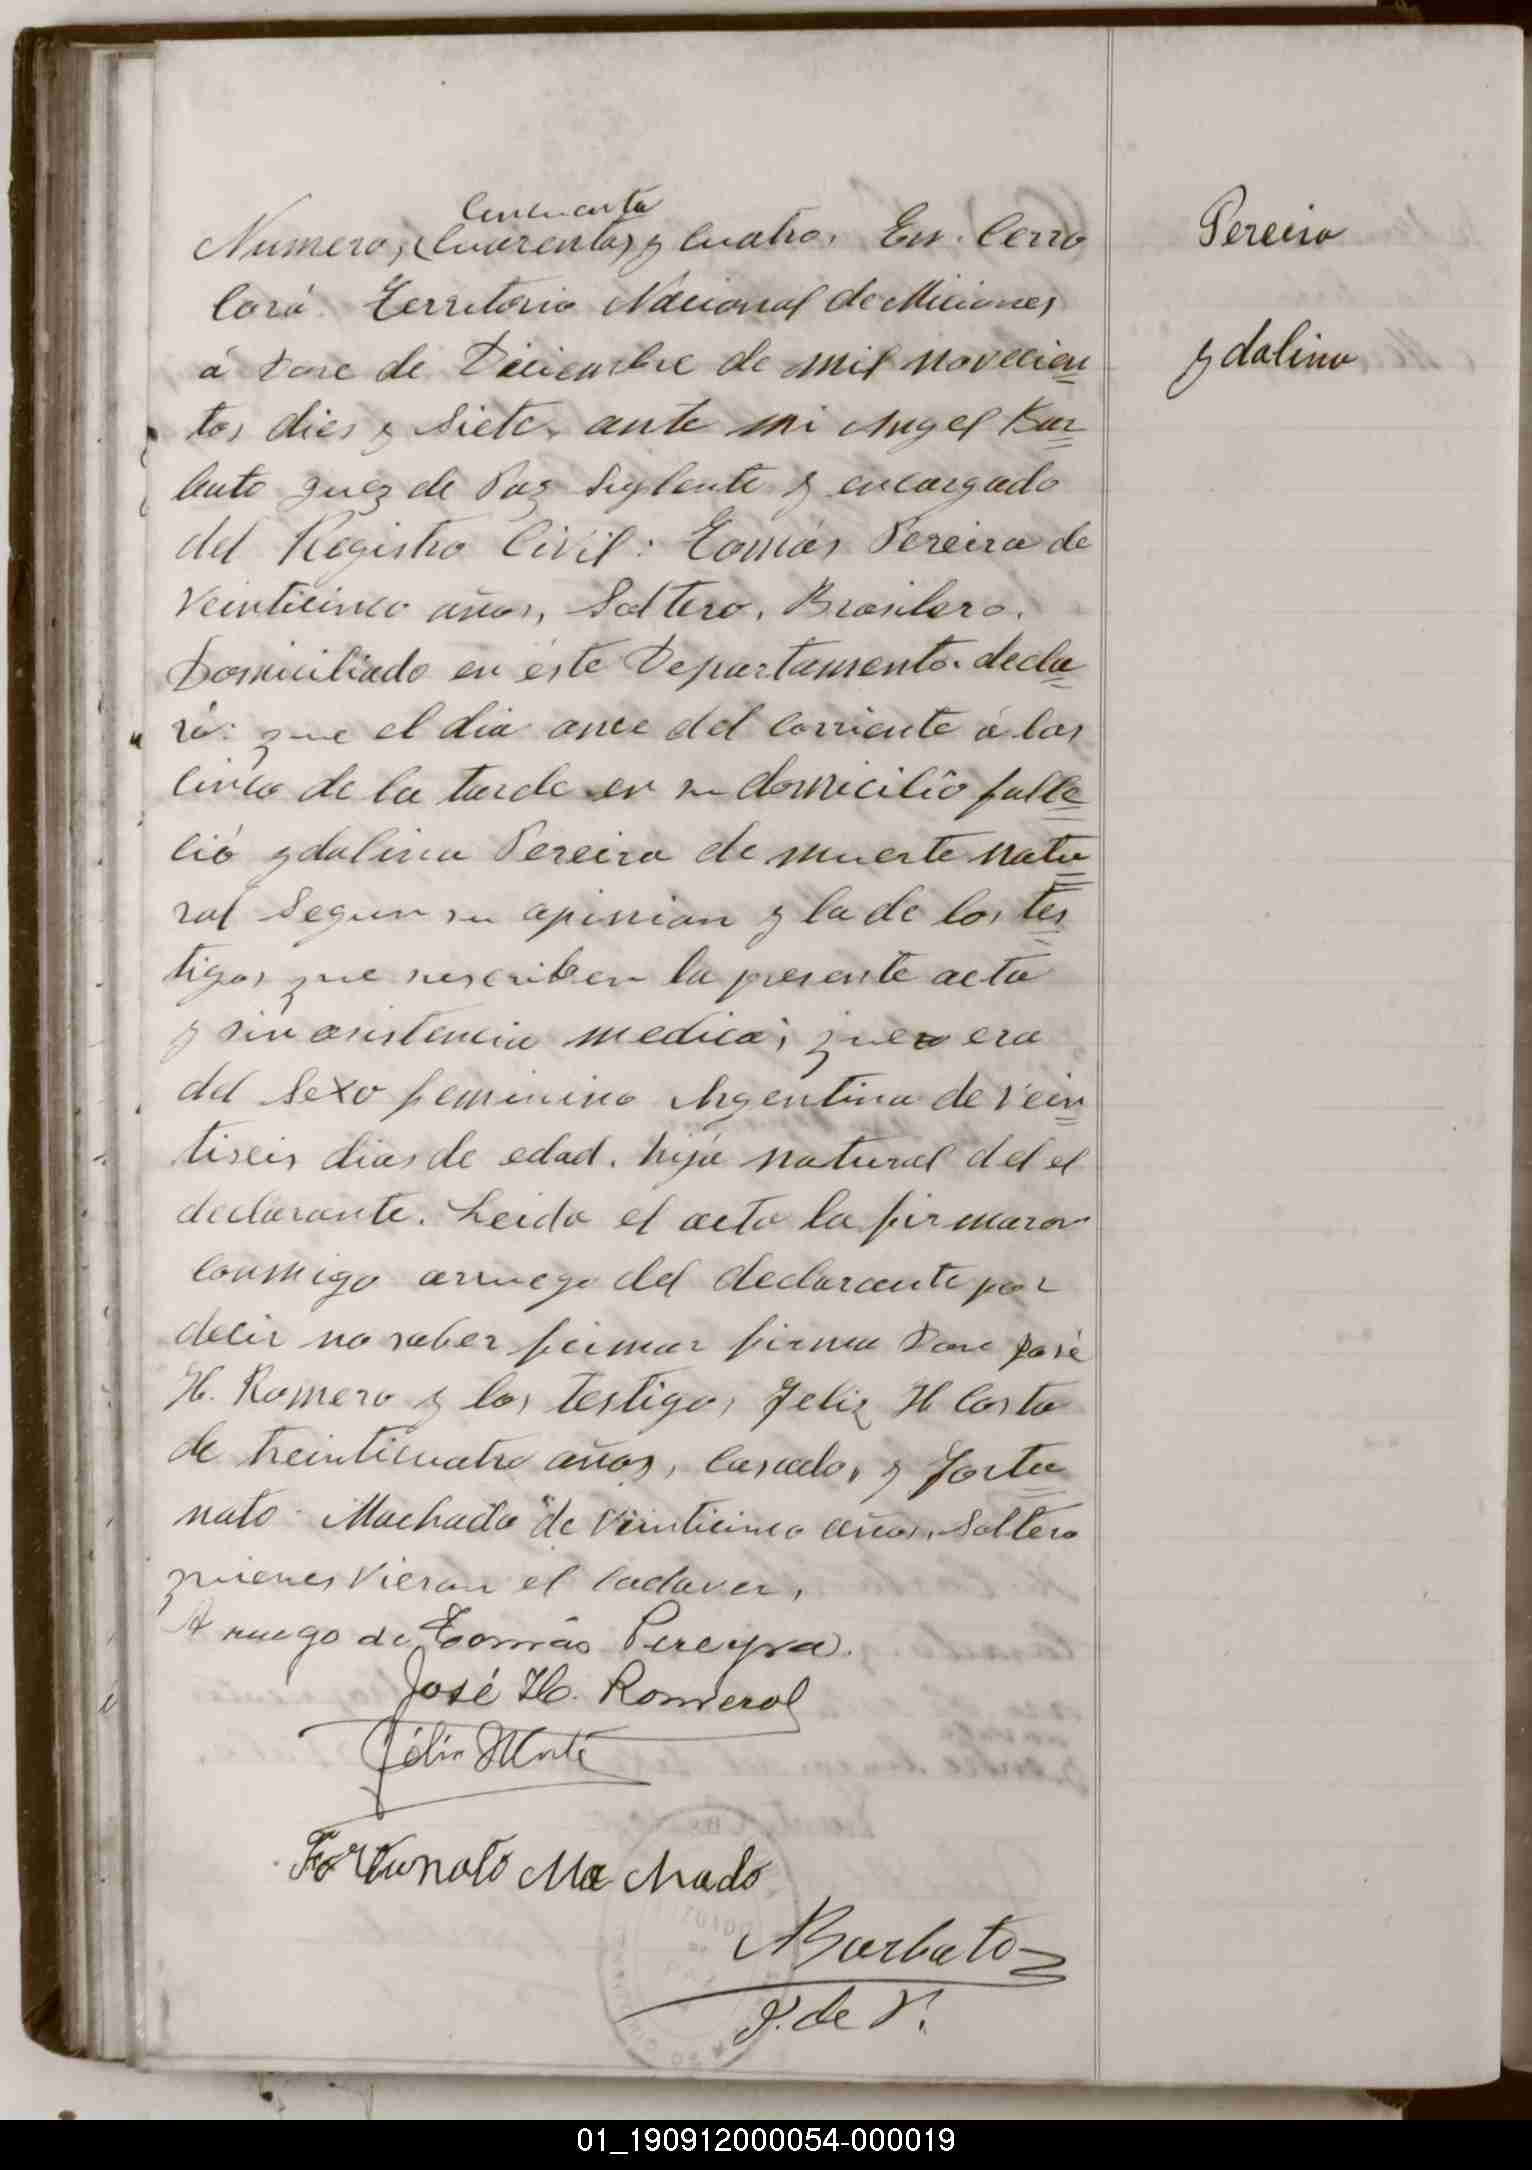 Cincuenta
Numero, (Cuarenta) y Cuatro. En Cerro
Corá. Territorio Nacional de Miciones
á Doce de Diciembre de mil novecien
tos dies y Siete, ante mi Angel Bar
bato Juez de Paz Suplente y encargado
del Registro Civil: Tomás Pereira de
Veinticinco años, Soltero, Brasilero.
Domiciliado en éste Departamento. decla
ró: que el dia once del corriente á las
cinco de la tarde en su domicilio falle
ció Ydalina Pereira de muerte natu
ral Segun su opinion y la de los tes
tigos que suscriben la presente acta
y sin asistencia medica; que era
del Sexo feminino Argentina de vein
tiseis dias de edad. hija natural del el
declarante. Leida el acta la firmaron
conmigo arruego del declarante por
decir no saber firmar firma Don José
H. Romero y los testigos Feliz H Costa
de treinticuatro años, Casado, y Fortu
nato Machado de Veinticinco años, Soltero
quienes Vieron el Cadaver,
A ruego de Tomás Pereyra.
José H. Romero
Félix H
Fortunato Machado
ABarbato
J. de P.
Pereira
Ydalina
01_190912000054-000019